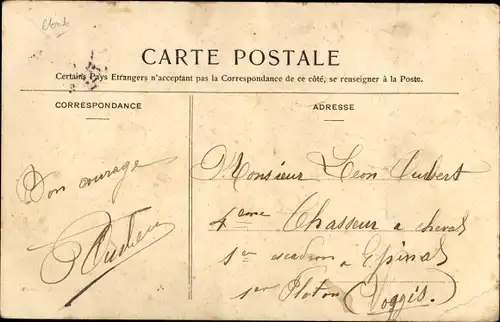 CARTE POSTALE
Certains Pays Etrangers n'acceptant pas la Correspondance de ce côté, se renseigner à la Poste.
CORRESPONDANCE
ADRESSE
Bon courage
Monsieur Leon Aubert
4eme Chasseur a cheval
1er escadron a Epinal
1er Ploton (Voggis.)